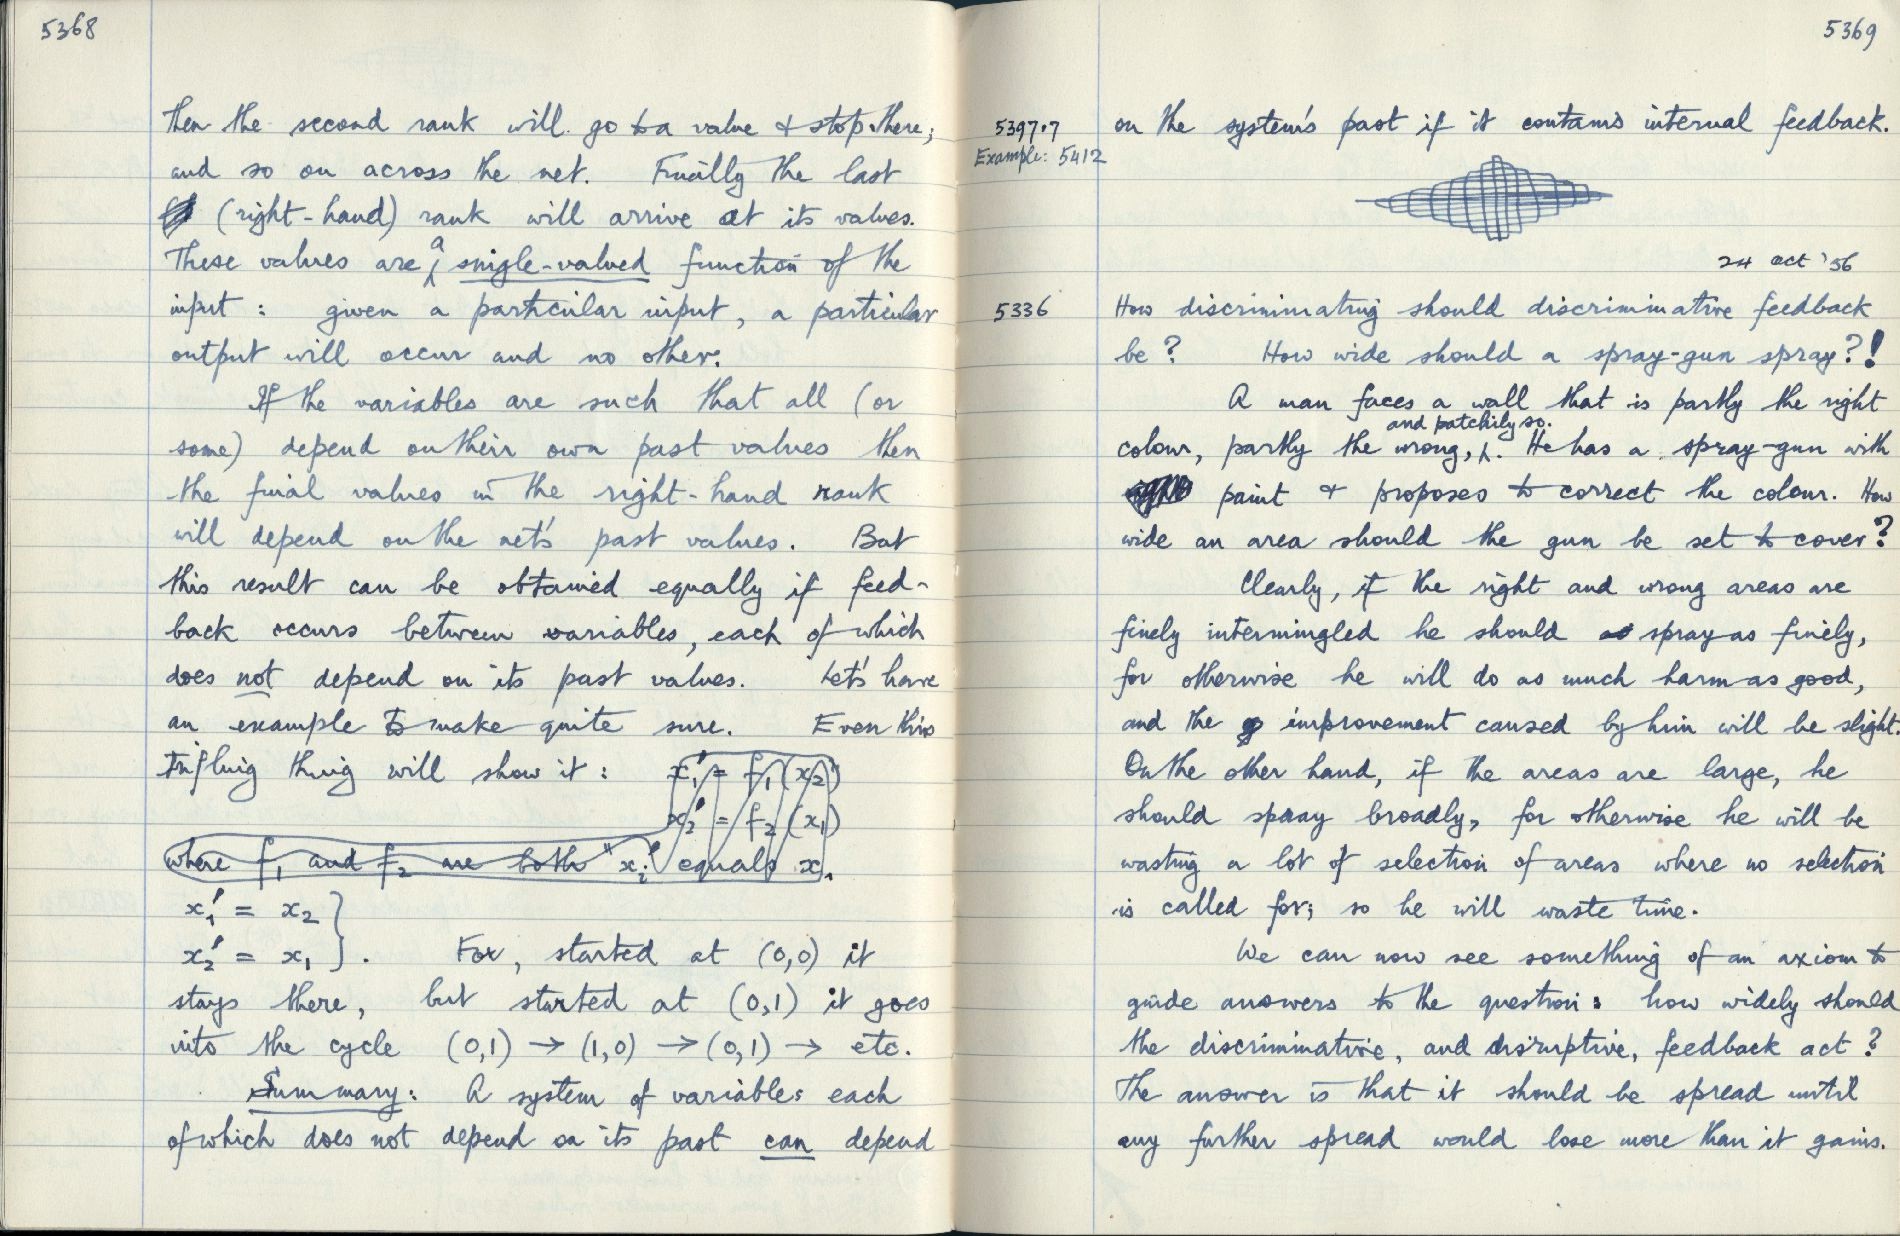 5368
then the second rank will go to a value & stop there;
and so on across the net. Finally the last
(right-hand) rank will arrive at its values.
These values are a single-valued function of the
input: given a particular input, a particular
output will occur and no other.
If the variables are such that all (or
some) depend on their own past values then
the final values in the right-hand rank
will depend on the net's past values. But
this result can be obtained equally if feed-
back occurs between variables, each of which
does not depend on its past values. Let's have
an example to make quite sure. Even this
trifling thing will show it: x₁' = f₁(x₂)
x₂' = f₂(x₁)
where f₁ and f₂ are both "xᵢ' equals x
x₁' = x₂
x₂' = x₁ }. For, started at (0,0) it
stays there, but started at (0,1) it goes
into the cycle (0,1) → (1,0) → (0,1) → etc.
Summary: A system of variables each
of which does not depend on its past can depend
5369
5397.7
Example: 5412
on the system's past if it contains internal feedback.
24 Oct '56
5336
How discriminating should discriminative feedback
be? How wide should a spray-gun spray?!
A man faces a wall that is partly the right
colour, partly the wrong, and patchily so. He has a spray-gun with
paint & proposes to correct the colour. How
wide an area should the gun be set to cover?
Clearly, if the right and wrong areas are
finely intermingled he should spray as finely,
for otherwise he will do as much harm as good,
and the improvement caused by him will be slight.
On the other hand, if the areas are large, he
should spray broadly, for otherwise he will be
wasting a lot of selection of areas where no selection
is called for; so he will waste time.
We can now see something of an axiom to
guide answers to the question: how widely should
the discriminative, and disruptive, feedback act?
The answer is that it should be spread until
any further spread would lose more than it gains.